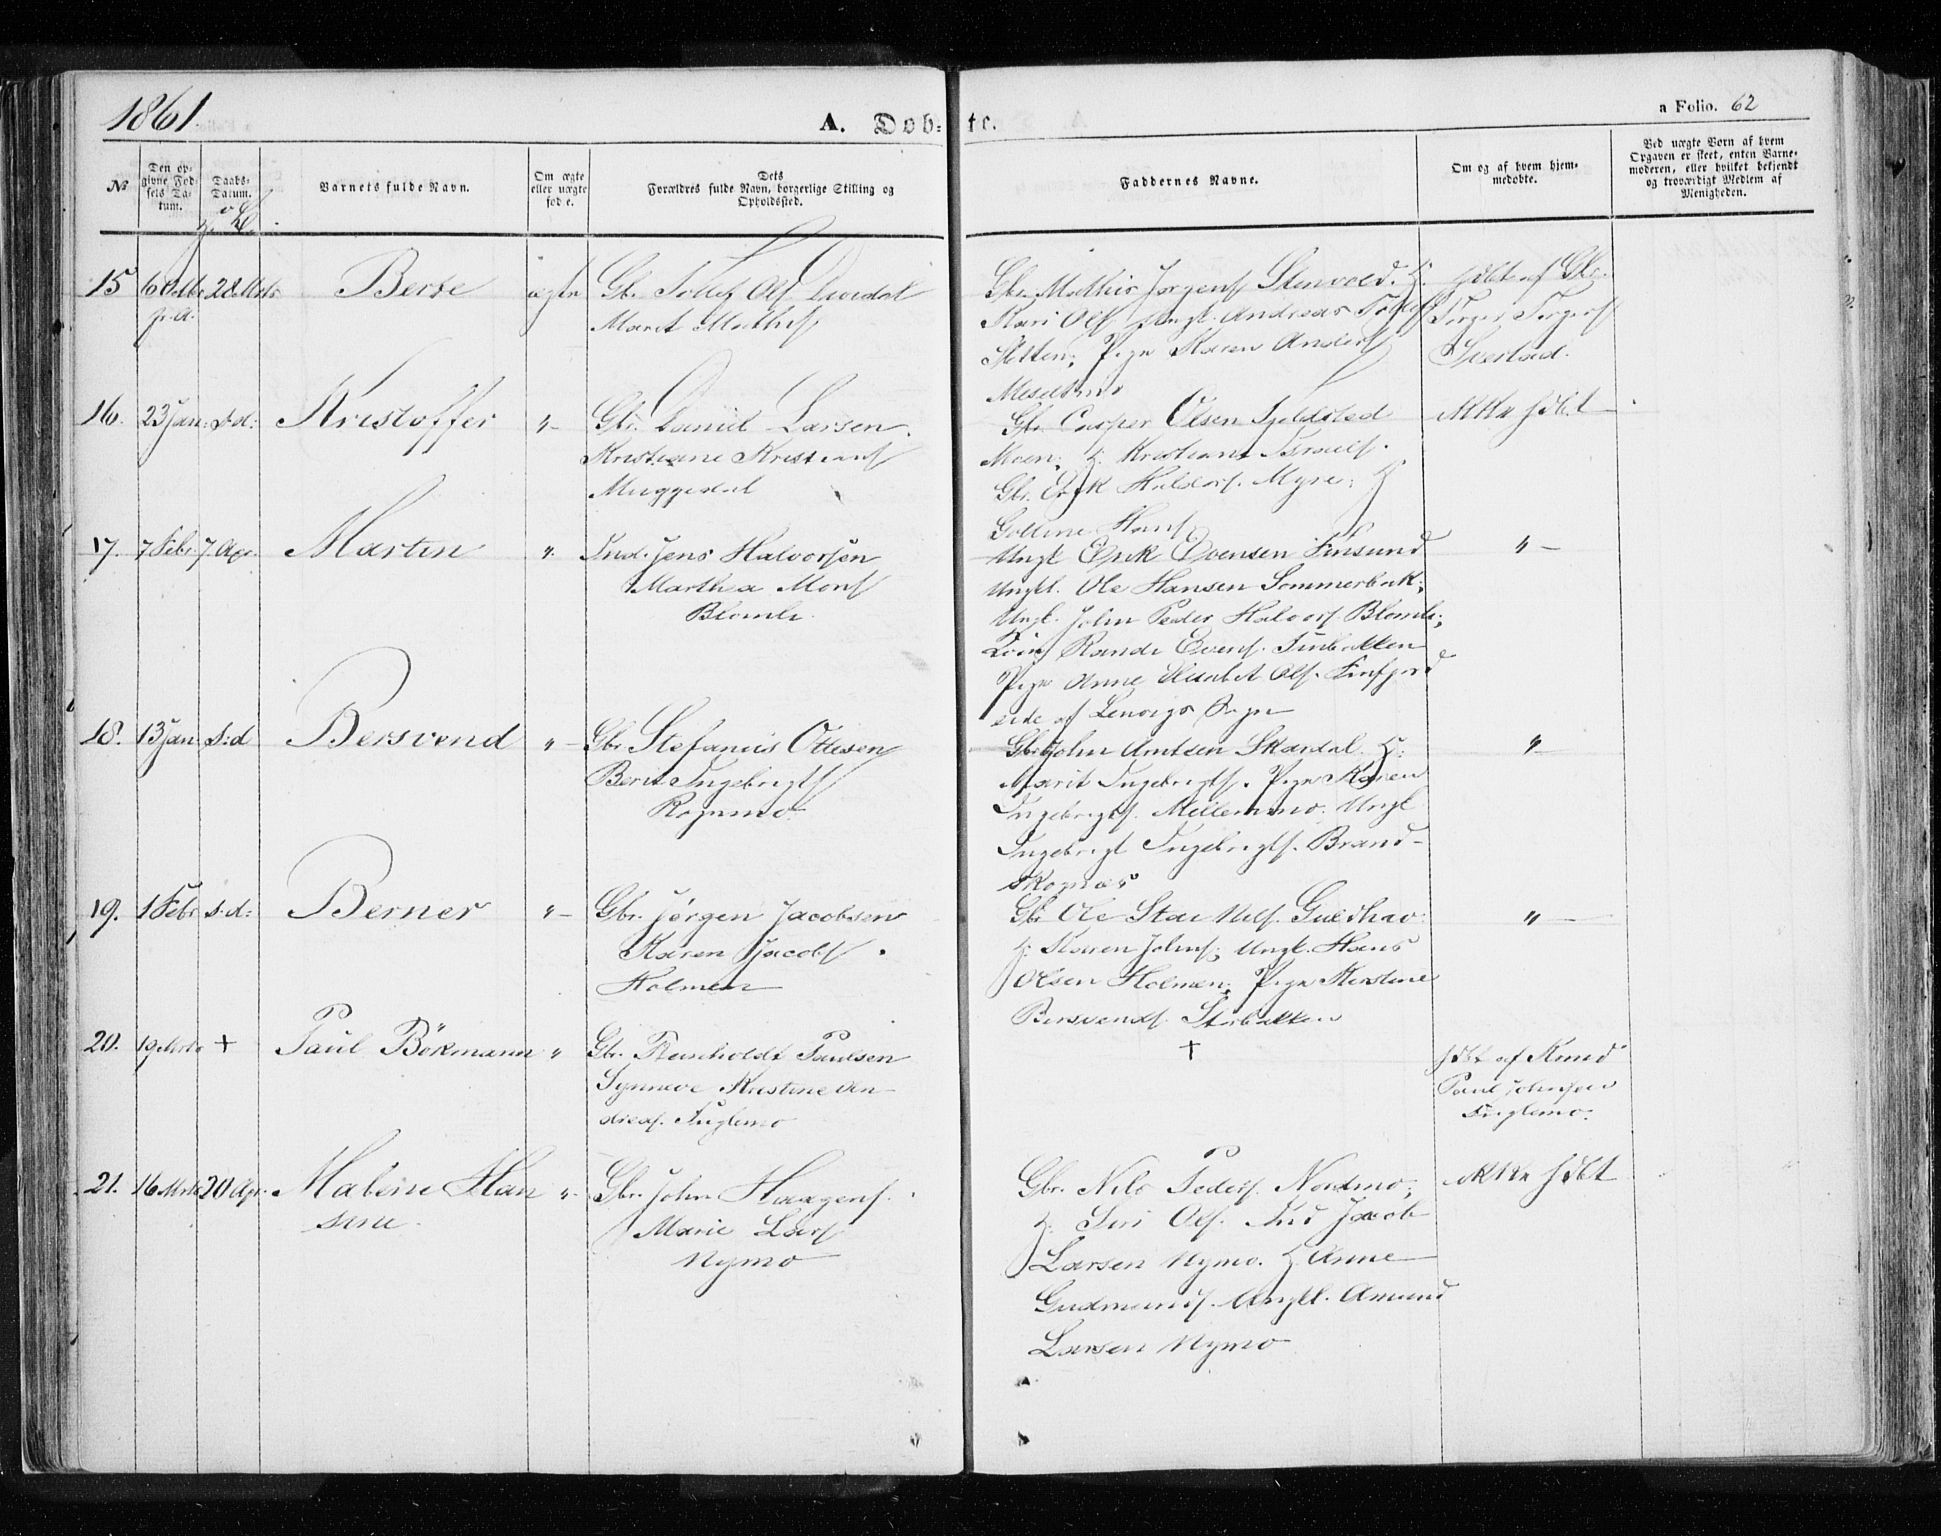 1861
A. Døb-
te.
a Folio. 62
No
Den op-
givne Fød-
sels Da-
tum.
Daabs-
Datum.
Barnets fulde Navn.
Om ægte
eller uægte
fød e.
Dets
Forældres fulde Navn, borgerlige Stilling og
Opholdssted.
Faddernes Navne.
Om og af hvem hjem-
medøbte.
Ved uægte Børn af hvem
Opgaven er skeet, enten Barne-
moderen, eller hvilket bekjendt
og troværdigt Medlem af
Menigheden.
15
28 Mrts
ægte
Gbr. Tollef Ols
Marit
Gbr. Mathis Jørgens Stenvold. H.
Kari Ols Ungk. Andreas Tollefs
Sletten; Pige Karen Anders
hdbt af Gbr.
Torger Torgers
16.
23 Jan:
s.d:
Kristoffer
"-
Gbr. Daniel Larsen.
Kristiane Kristians
Muggedal
Gbr. Casper Olsen Fjeldsted
Moen; H. Kristiane Israels.
Gbr. Erik Haldors. Myre; H
Hans
Ikke hdbt
17.
7 Febr
7 Apr.
Martin
"-
Ind. Jens Halvorsen
Marthea Mons
Blomli.
Ungk Erik Evensen Finsund
Ungkl. Ole Hansen Sommerbak;
Ungk. John Peder Halvors. Blomli;
Randi Evens. Finbakken
Pige Anne Elisabet Ols. Finfjord
af Lenvigs Sogn
"-
18.
13 Jan
s:d
Bersvend
"-
Gbr Stefanus Ottesen
Berit Ingebrigts
Rognmo
Gbr John Arntsen Skardal. H:
Marit Ingebrigts. Pige Karen
Ingebrigts. Mellemmo. Ungk
Ingebrigt Ingebrigts. Brand-
skognæs
"-
19.
1 Febr
s.d:
Berner
"-
Gbr. Jørgen Jacobsen
Karen Jacobs.
Holmen
Gbr Ole Nils. Guldhav:
H. Karen Johns; Ungk. Hans
Olsen Holmen; Pige Kirstine
Bersvends. Storbakken
"-
20.
19 Mrts
+
Paul Bökmann
"
Gbr. Reinholdt Paulsen
Synneve Kristine An-
dreas. Fuglemo
+
hdbt af Knud
Paul Johnsen
Fuglemo.
21.
16 Mrts
20 Apr.
Malene Han
sine.
"-
Gbr. John Haagens.
Marie Lars
Nymo
Gbr. Nils Peders. Nordmo;
H. Siri Ols. Ind Jacob
Larsen Nymo. H Anne
Gudmunds. Ungkl. Amund
Larsen Nymo
Ikke hdbt